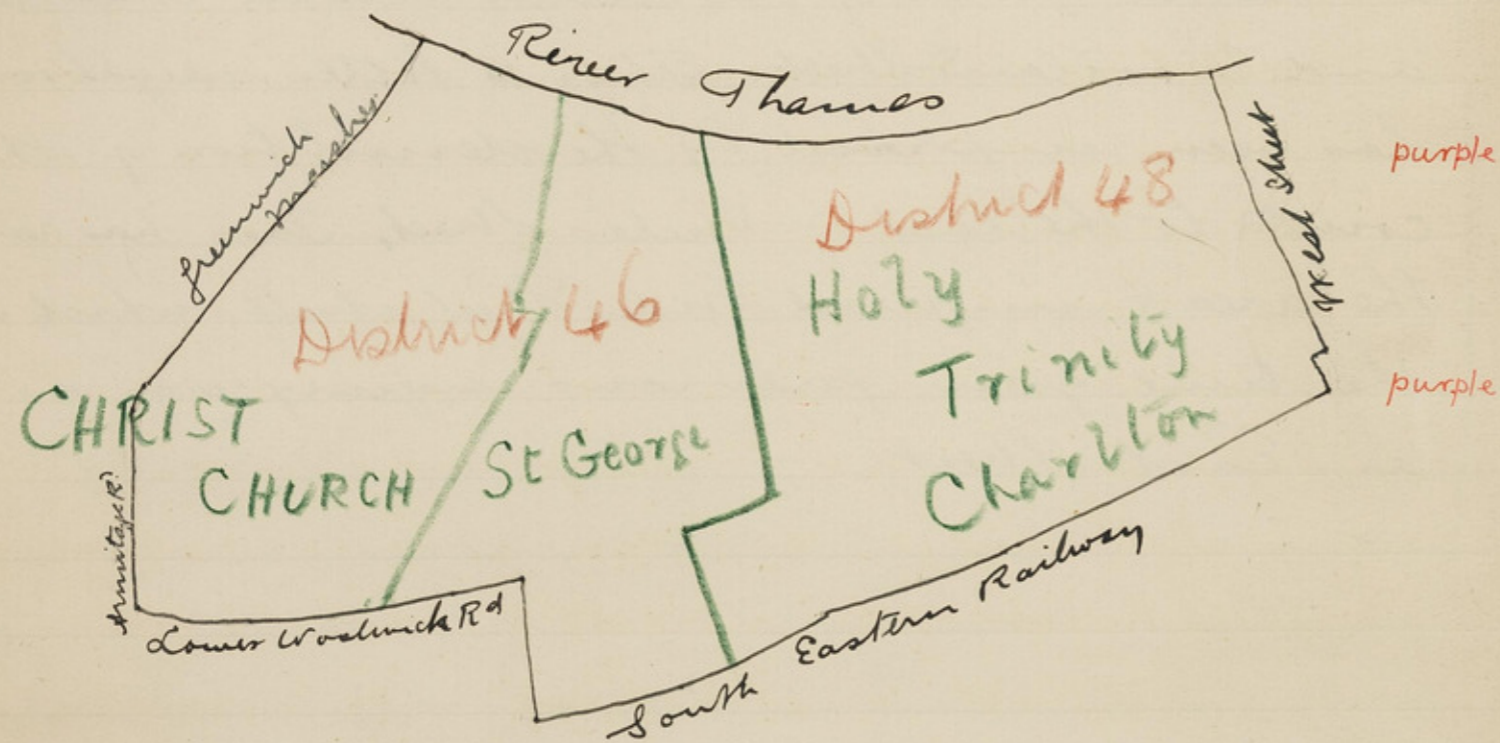 River Thames
Greenwich
Marshes
West Street
purple
District 48
Holy
Trinity
Charlton
District 46
purple
CHRIST
CHURCH
St George
Armitage Rd
Lower Woolwich Rd
South Eastern Railway